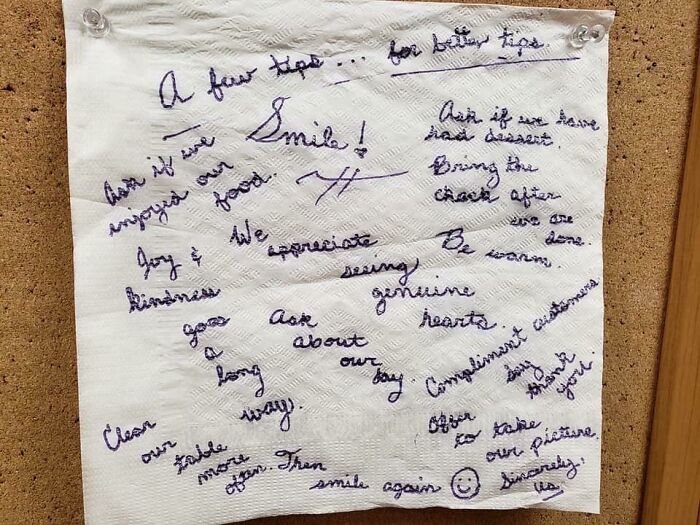 A few tips... for better tips.
Smile!
Ask if we
enjoyed our
food.
Ask if we have
had dessert.
Bring the
check after
we are
done.
Be warm.
Joy &
kindness
goes
a
long
way.
We
appreciate
seeing
genuine
hearts.
Ask
about
our
day.
Compliment customers
Say
thank
you.
Clear
our
table
more
often. Then
smile again
Offer
to take
our picture.
Sincerely,
Us